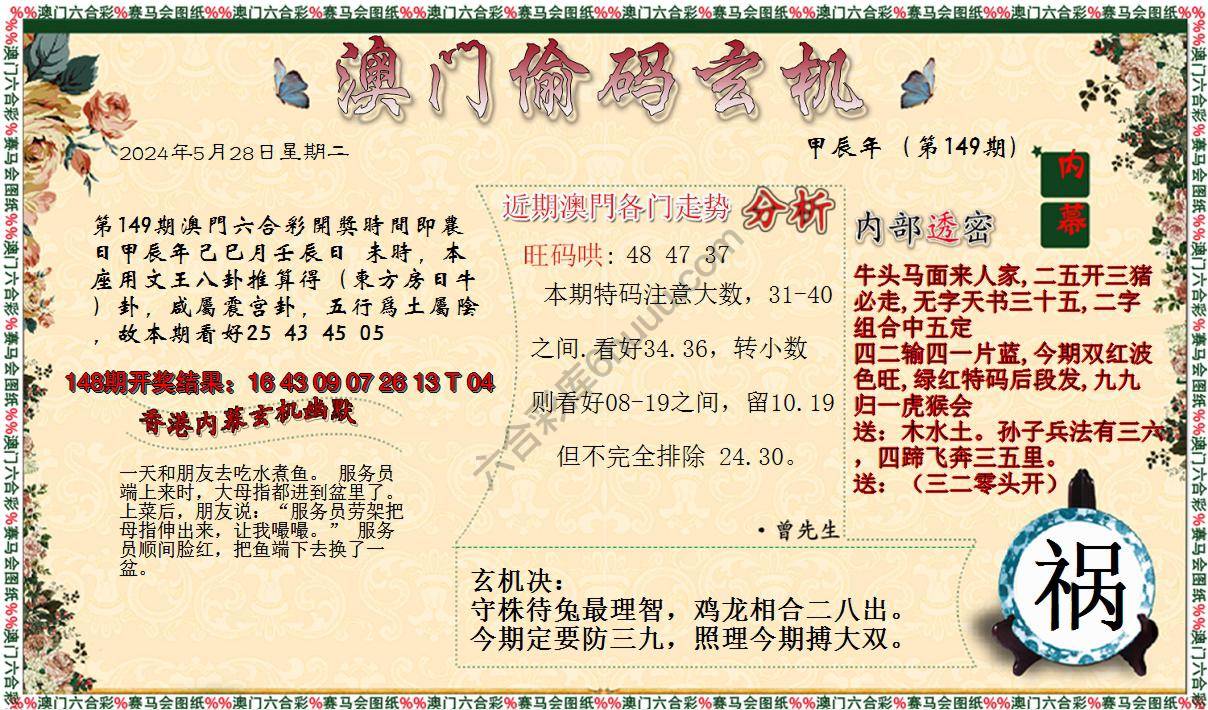 %%澳门六合彩%赛马会图纸%%澳门六合彩%赛马会图纸%%澳门六合彩%赛马会图纸%%澳门六合彩%赛马会图纸%%澳门六合彩%赛马会图纸%%澳门六合彩%赛马会图纸%%
澳门偷码玄机
2024年5月28日星期二
甲辰年（第149期）
内
幕
第149期澳門六合彩開獎時間即農
日甲辰年己巳月壬辰日 未時，本
座用文王八卦推算得（東方房日牛
）卦，咸屬震宫卦，五行爲土屬陰
，故本期看好25 43 45 05
148期开奖结果：16 43 09 07 26 13 T 04
香港内幕玄机幽默
一天和朋友去吃水煮鱼。 服务员
端上来时，大母指都进到盆里了。
上菜后，朋友说：“服务员劳架把
母指伸出来，让我嘬嘬。” 服务
员顺间脸红，把鱼端下去换了一
盆。
近期澳門各门走势 分析
旺码哄: 48 47 37
本期特码注意大数，31-40
之间.看好34.36，转小数
则看好08-19之间，留10.19
但不完全排除 24.30。
·曾先生
内部透密
牛头马面来人家,二五开三猪
必走,无字天书三十五,二字
组合中五定
四二输四一片蓝,今期双红波
色旺,绿红特码后段发,九九
归一虎猴会
送：木水土。孙子兵法有三六
，四蹄飞奔三五里。
送：（三二零头开）
玄机决：
守株待兔最理智，鸡龙相合二八出。
今期定要防三九，照理今期搏大双。
祸